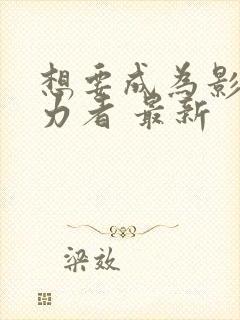 想要成为影
力者 最新
梁效